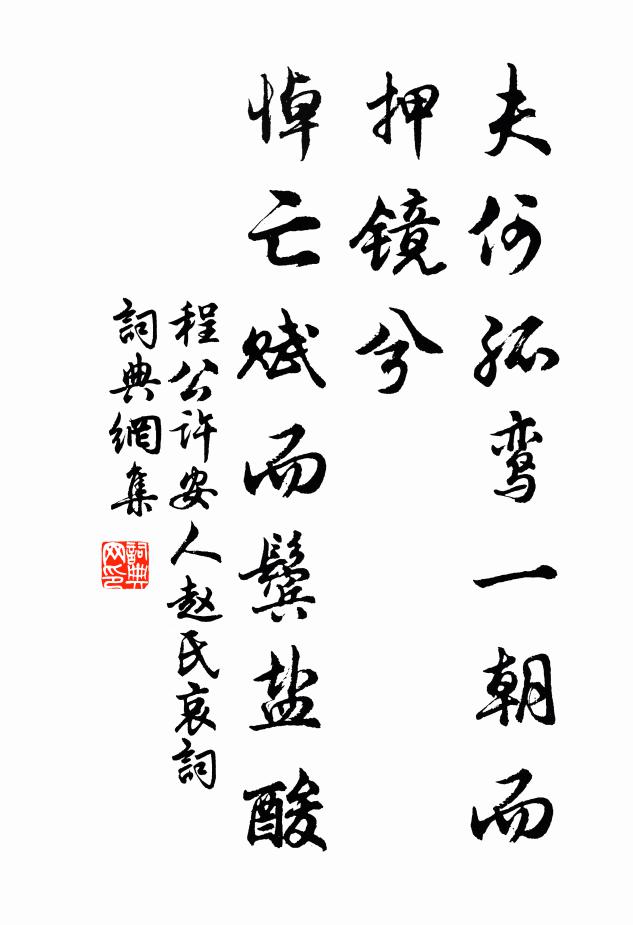 夫何孤鸾一朝而
押镜兮
悼亡赋而鬓盐酸
程公许安人赵氏哀詞
詞典網集
詞典网印